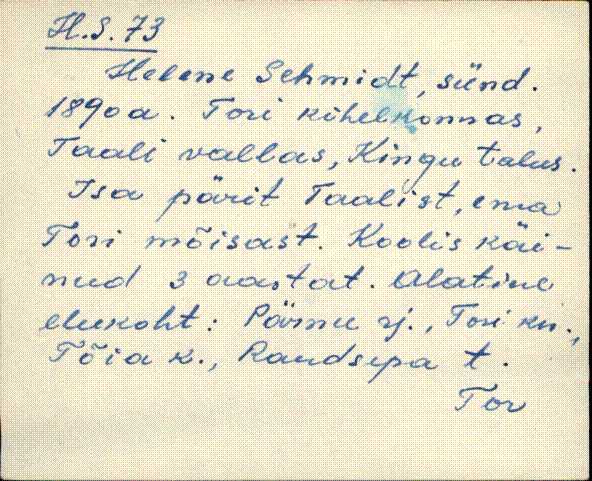 H.S. 73
Helene Schmidt, sünd.
1890 a. Tori kihelkonnas,
Taali vallas, Kingu talus.
Isa pärit Taalist, ema
Tori mõisast. Koolis käi-
nud 3 aastat. Alatine
elukoht: Pärnu rj., Tori kn.,
Tõia k., Raudsepa t.
Tor